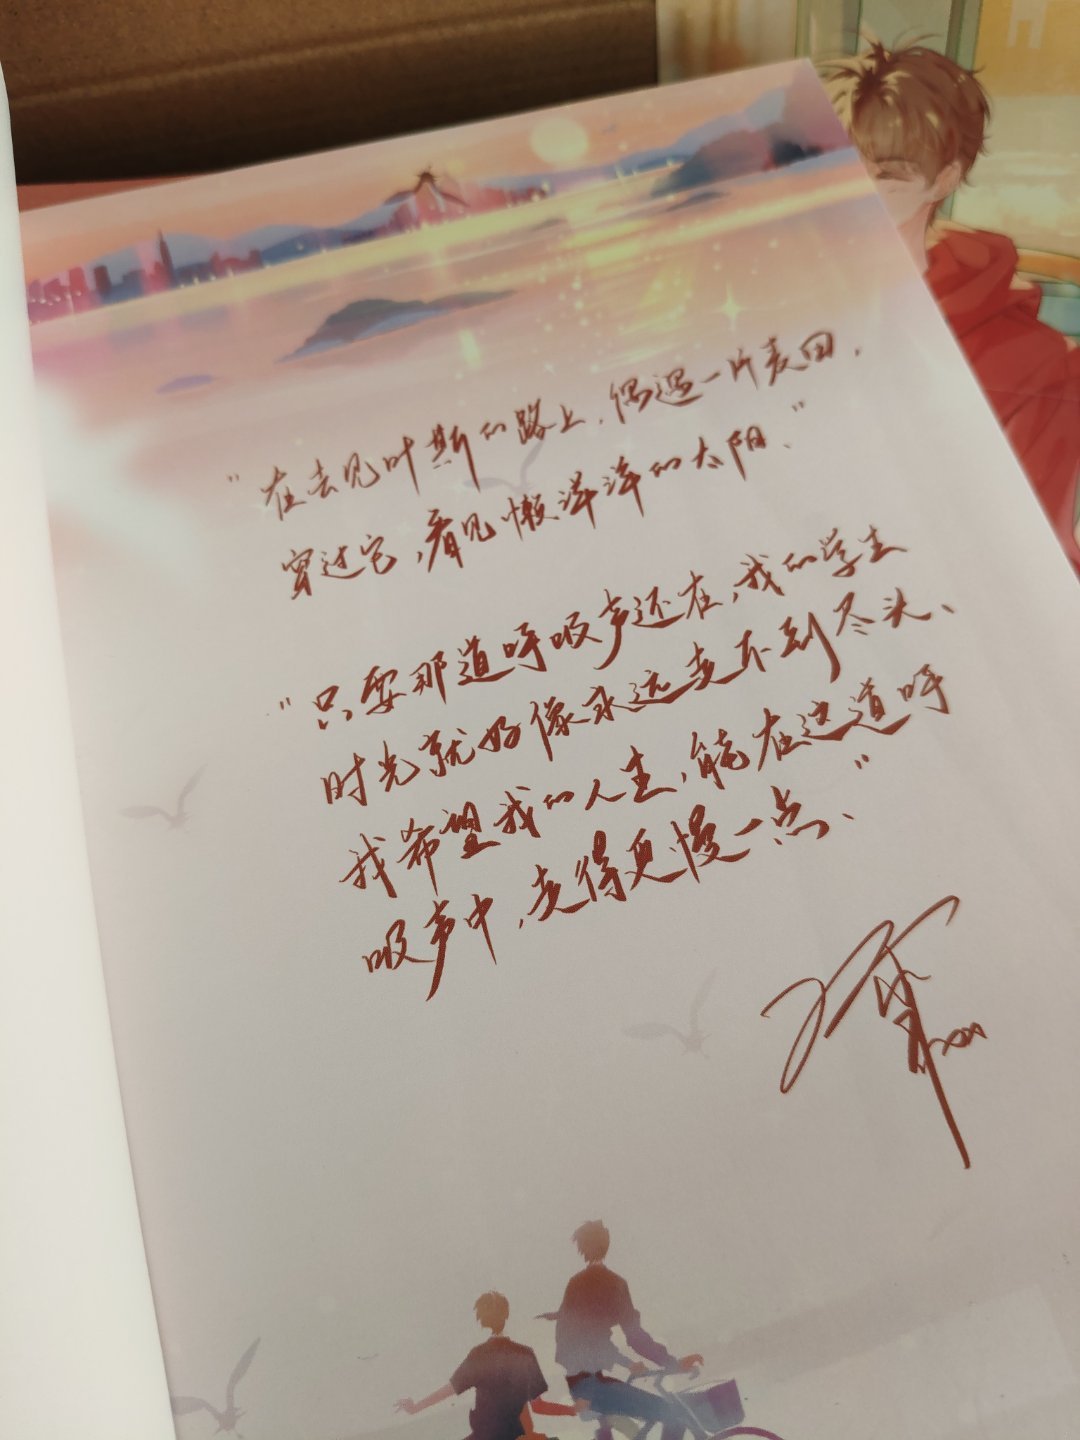 "在去见叶斯的路上，偶遇一片麦田，
穿过它，看见懒洋洋的太阳。"
"只要那道呼吸声还在，我的学生
时光就好像永远走不到尽头、
我希望我的人生，能在这道呼
吸声中，走得更慢一点、"